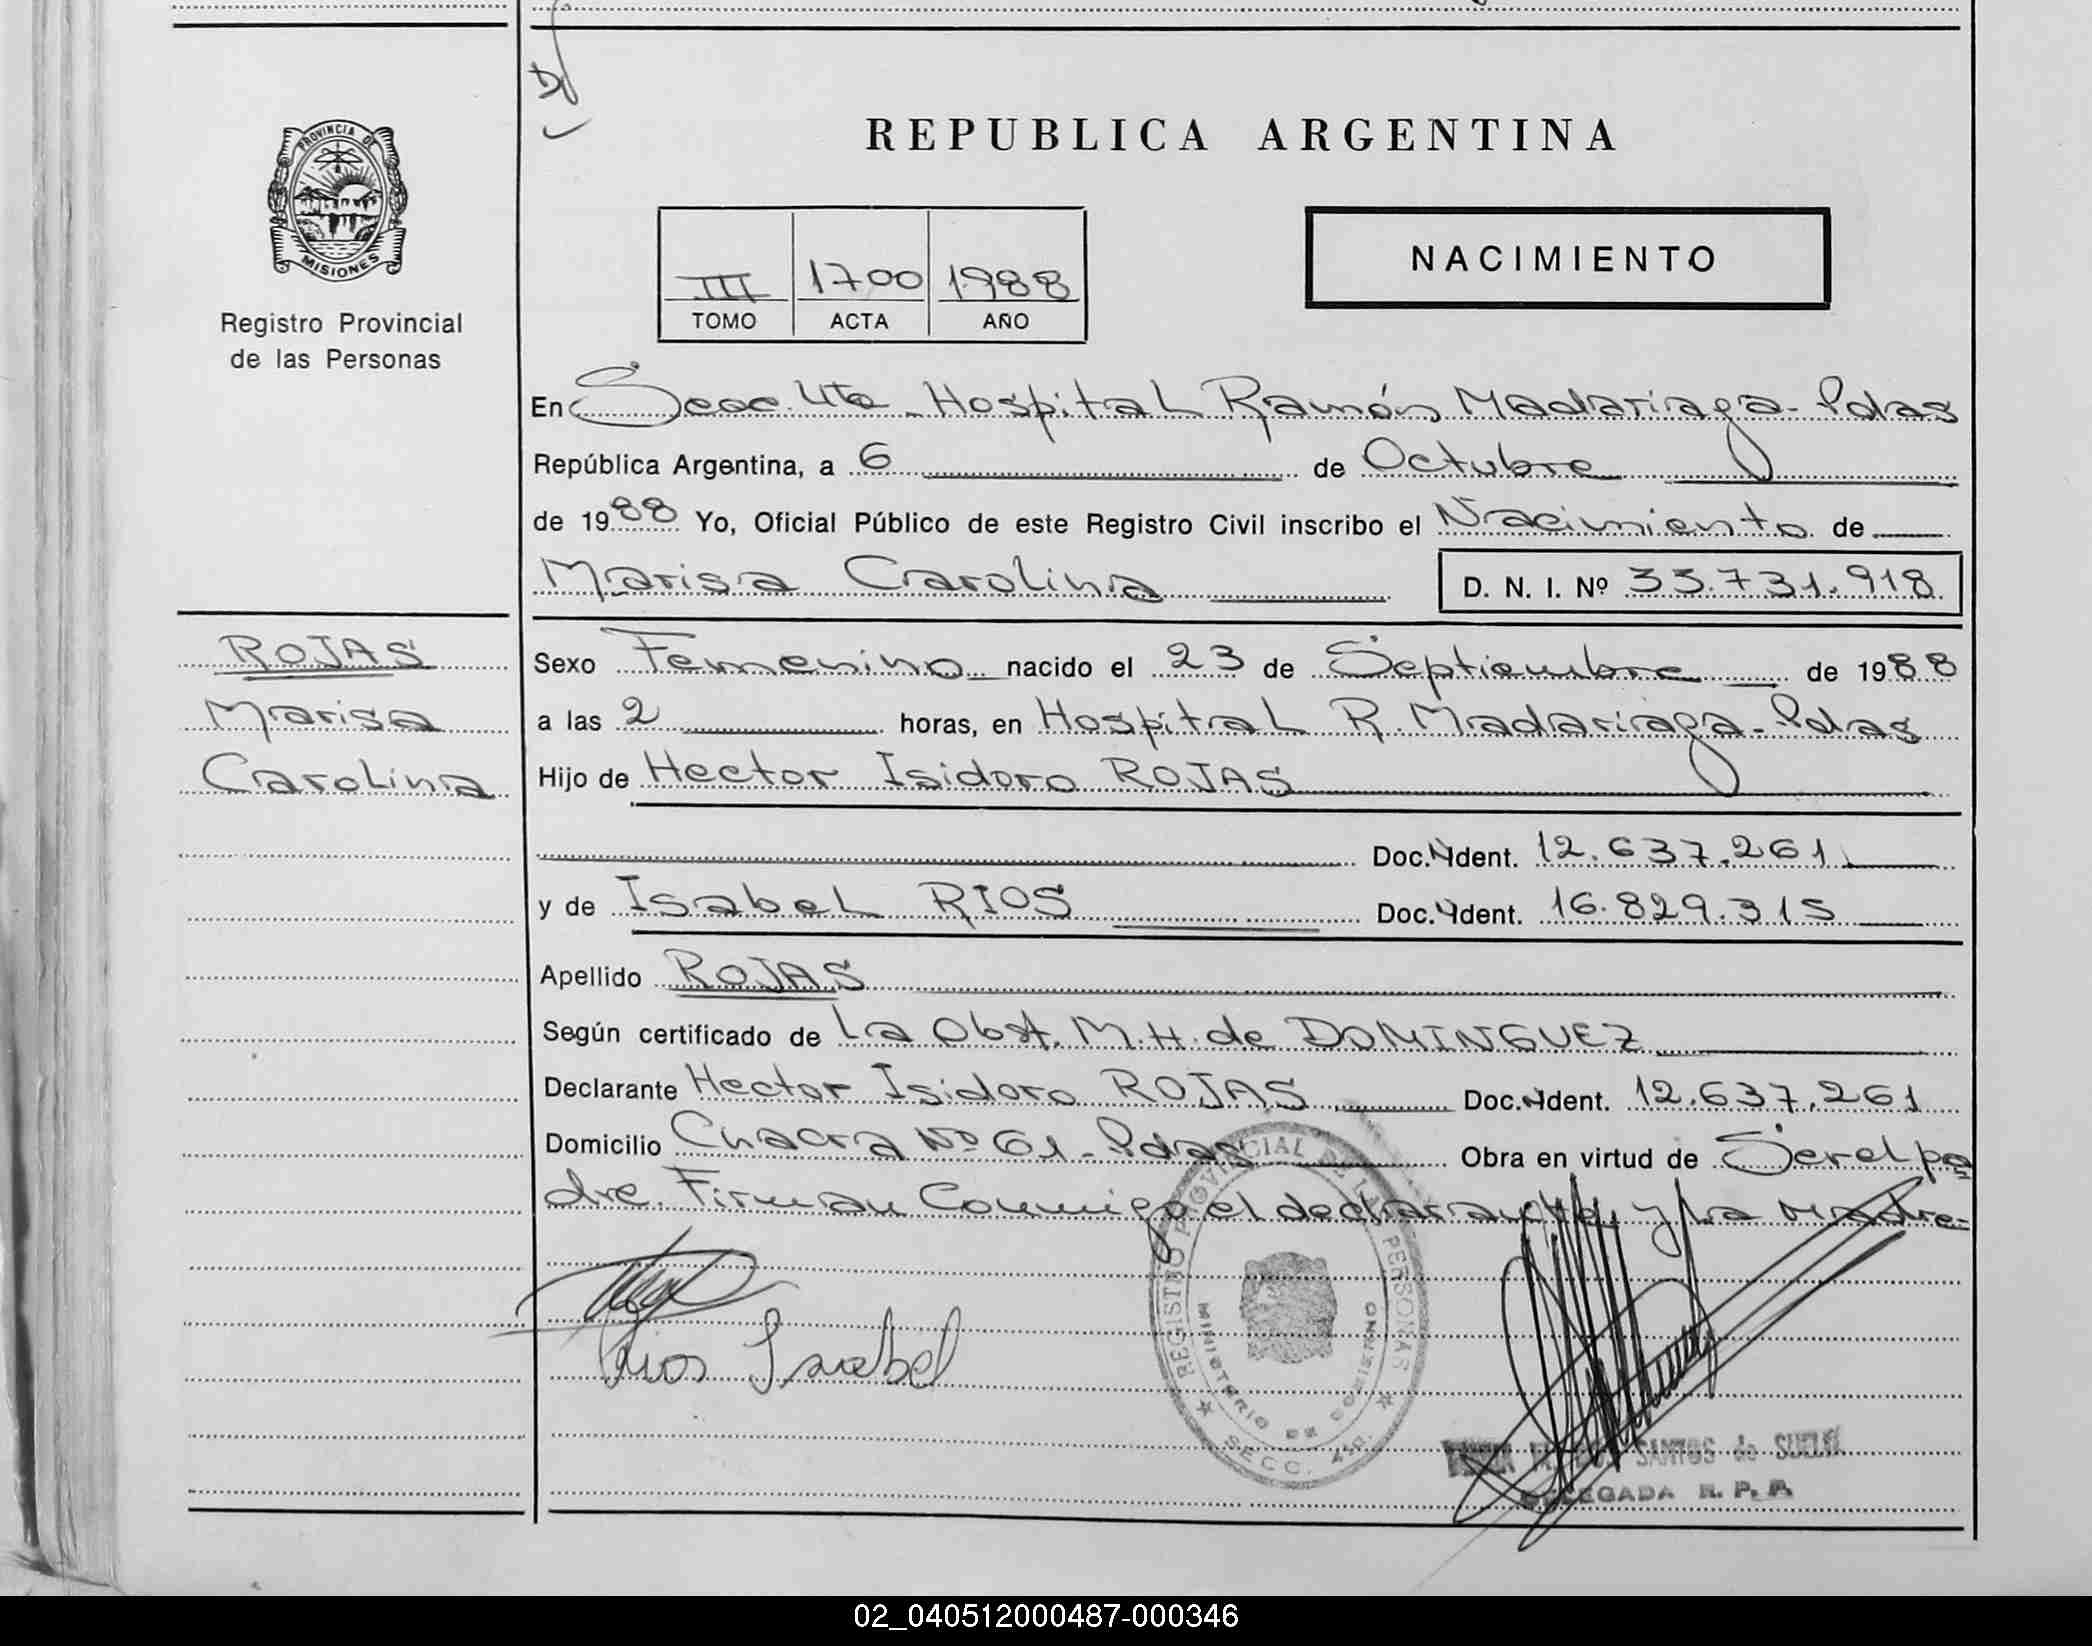 REPUBLICA ARGENTINA
PROVINCIA DE
MISIONES
Registro Provincial
de las Personas
NACIMIENTO
III 1700 1988
TOMO ACTA AÑO
En Secc. 4ta - Hospital Ramón Madariaga - Pdas
República Argentina, a 6 de Octubre
de 1988 Yo, Oficial Público de este Registro Civil inscribo el Nacimiento de
Marisa Carolina D. N. I. Nº 33.731.918
ROJAS
Marisa
Carolina
Sexo Femenino nacido el 23 de Septiembre de 1988
a las 2 horas, en Hospital R. Madariaga - Pdas
Hijo de Hector Isidoro ROJAS
Doc. Ident. 12.637.261
y de Isabel RIOS Doc. Ident. 16.829.315
Apellido ROJAS
Según certificado de La Obst. M.H. de DOMINGUEZ
Declarante Hector Isidoro ROJAS Doc. Ident. 12.637.261
Domicilio Chacra Nº 61 - Pdas Obra en virtud de Ser el pa=
dre. Firman Conmigo el declarante y La Madre-
Rios Isabel
REGISTRO PROVINCIAL DE LAS PERSONAS
MINISTERIO DE GOBIERNO
SECC. 4ta.
SANTOS de
DELEGADA R. P. P.
02_040512000487-000346